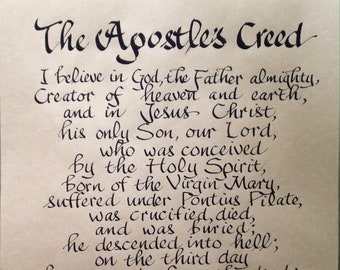 The Apostle's Creed
I believe in God, the Father almighty,
Creator of heaven and earth,
and in Jesus Christ,
his only Son, our Lord,
who was conceived
by the Holy Spirit,
born of the Virgin Mary,
suffered under Pontius Pilate,
was crucified, died,
and was buried;
he descended into hell;
on the third day